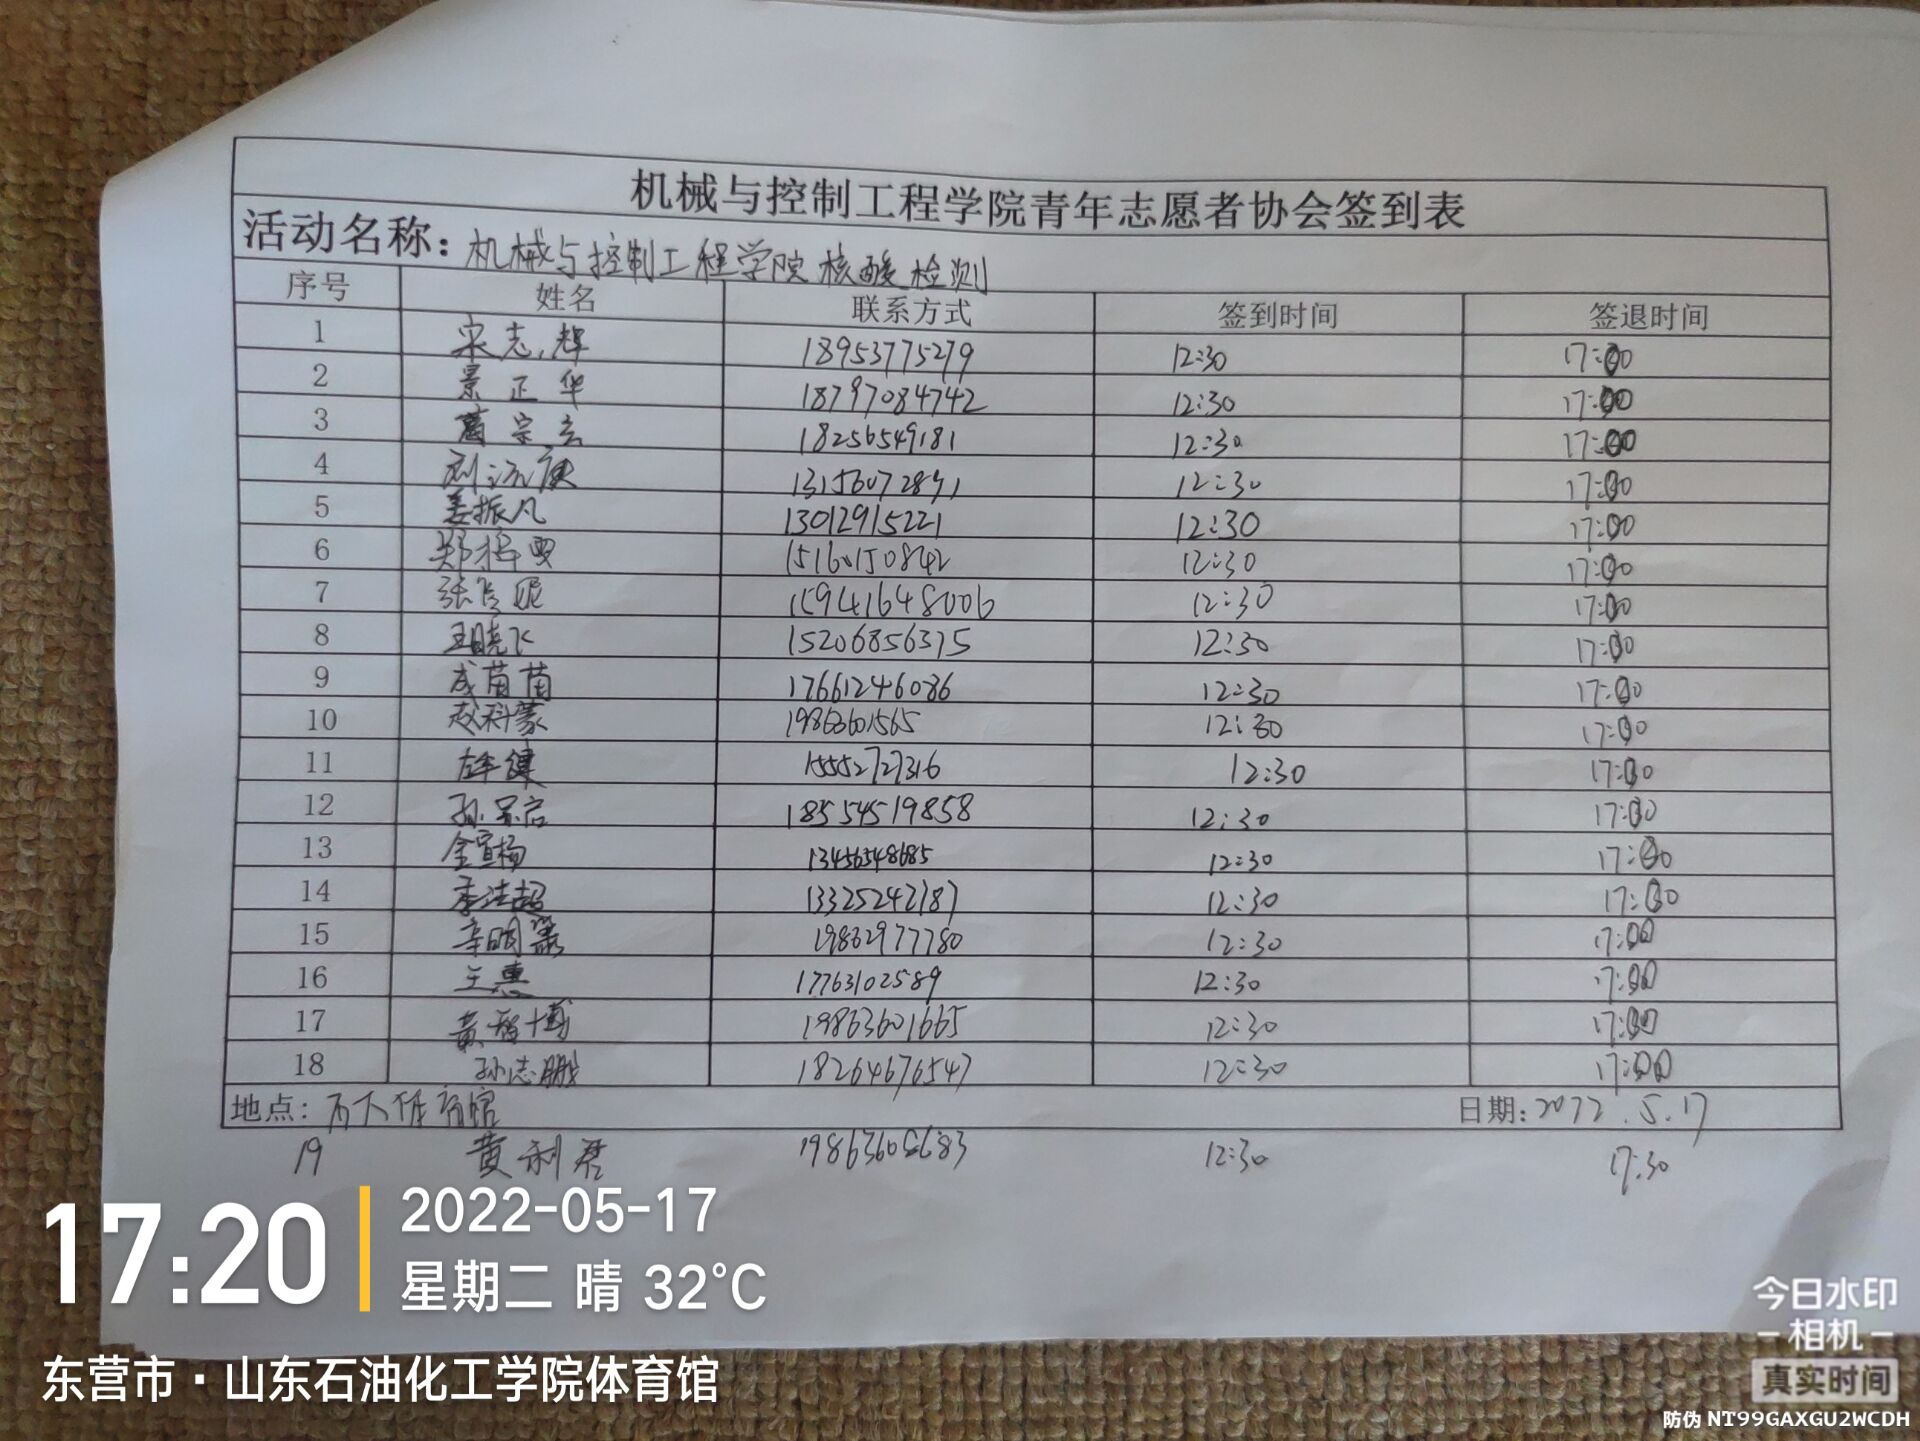 机械与控制工程学院青年志愿者协会签到表
活动名称：机械与控制工程学院核酸检测
序号 姓名 联系方式 签到时间 签退时间
1 宋志辉 18953775279 12:30 17:00
2 景正华 18797084742 12:30 17:00
3 葛宗玄 18256549181 12:30 17:00
4 12:30 17:00
5 姜振凡 13012915221 12:30 17:00
6 15160150842 12:30 17:00
7 15941648006 12:30 17:00
8 王晓飞 15206856375 12:30 17:00
9 成苗苗 17661246086 12:30 17:00
10 赵科蒙 19863601565 12:30 17:00
11 15552727316 12:30 17:00
12 18554519858 12:30 17:00
13 金宣杨 13456548685 12:30 17:00
14 季浩超 13325242787 12:30 17:00
15 19862977780 12:30 17:00
16 王惠 17763102589 12:30 17:00
17 黄智博 19863601665 12:30 17:00
18 孙志鹏 18264676547 12:30 17:00
地点：石大体育馆 日期：2022.5.17
19 黄利君 12:30 17:30
17:20
2022-05-17
星期二 晴 32°C
东营市·山东石油化工学院体育馆
今日水印
相机
真实时间
防伪 NT99GAXGU2WCDH